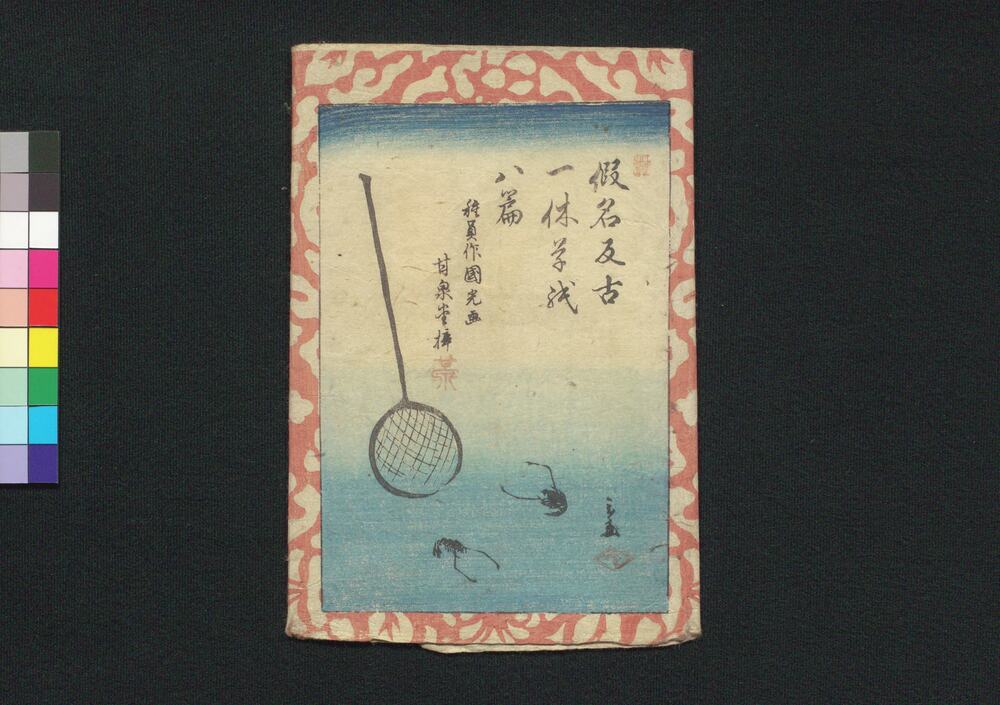 假名反古
一休草紙
八篇
種員作國光画
甘泉堂梓